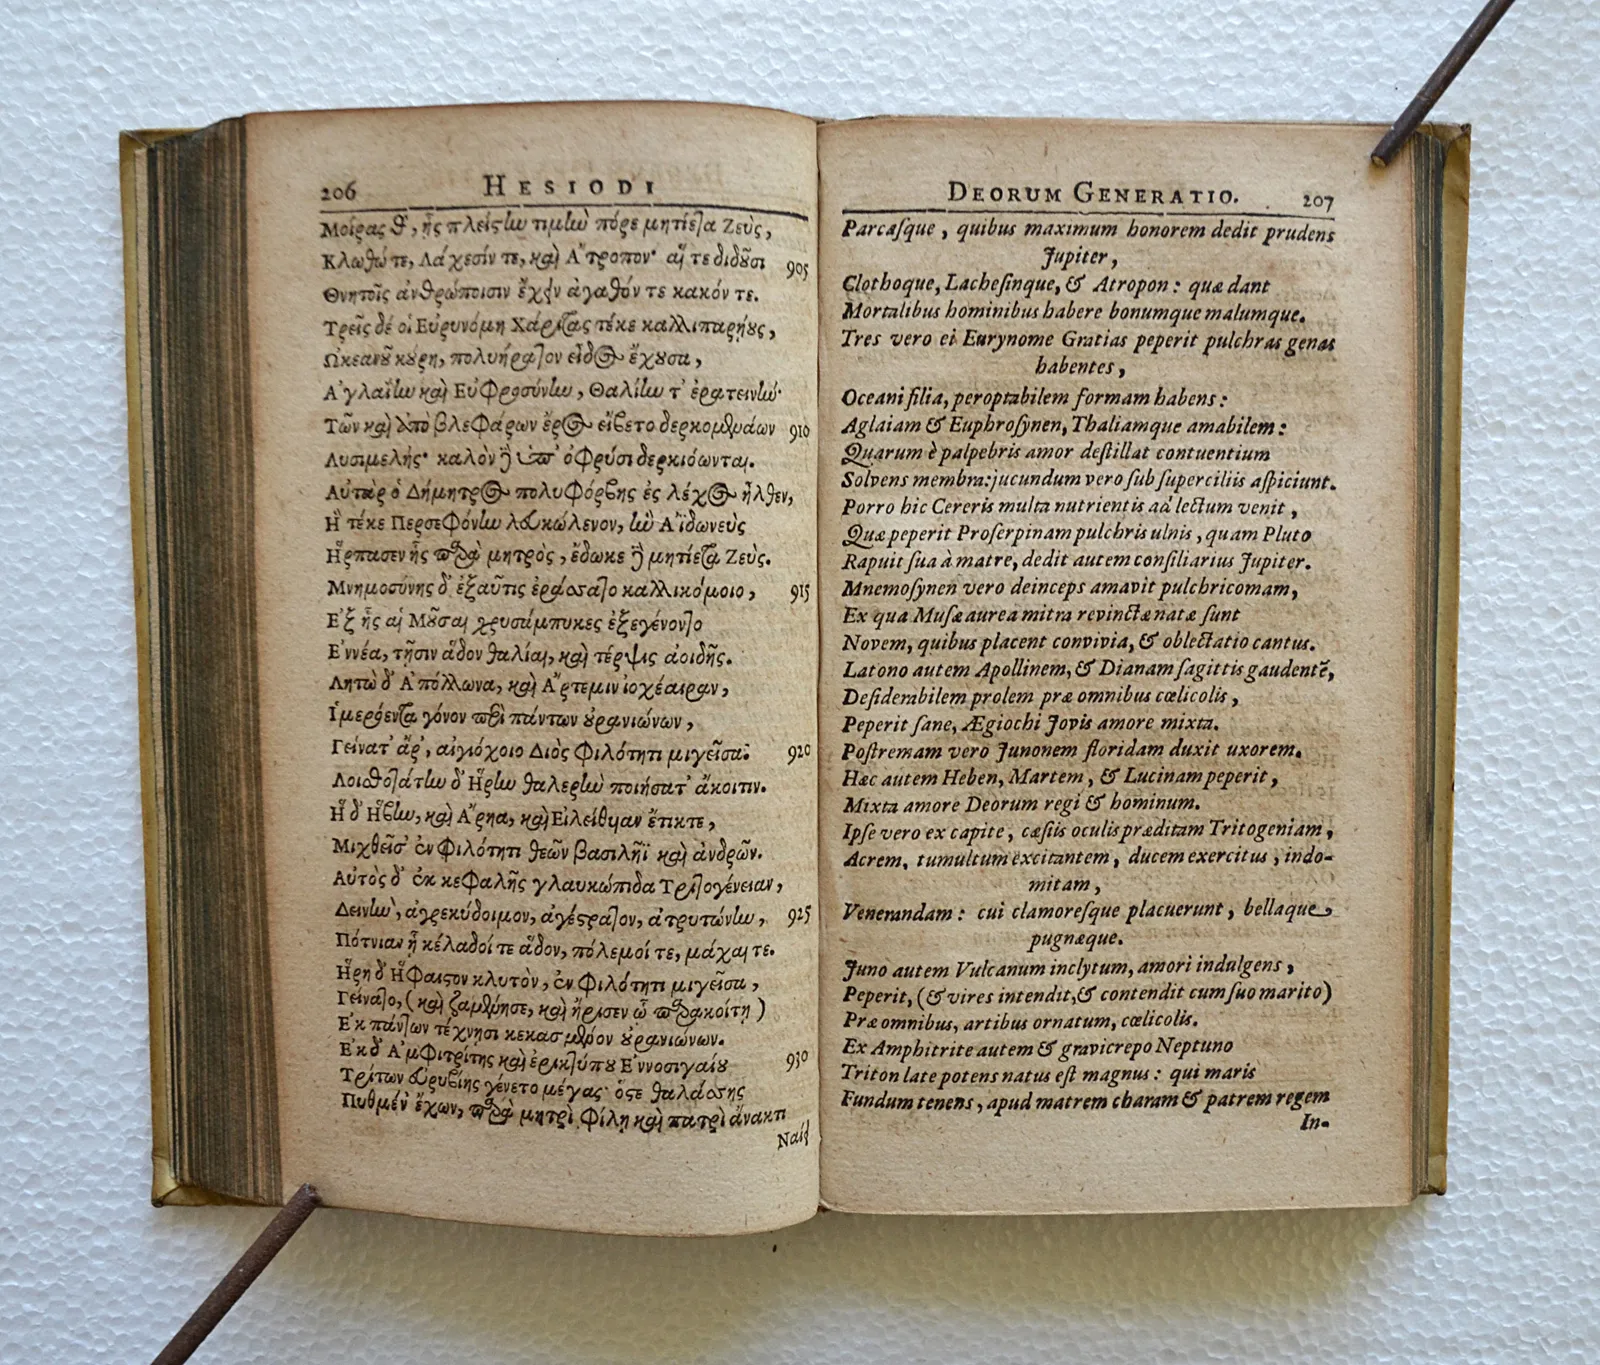 206 HESIODI
Μοίρας θ', ᾗς πλείστην τιμὴν πόρε μητίετα Ζεὺς,
Κλωθώ τε, Λάχεσίν τε, καὶ Ἄτροπον· αἵ τε διδοῦσι 905
Θνητοῖς ἀνθρώποισιν ἔχειν ἀγαθόν τε κακόν τε.
Τρεῖς δέ οἱ Εὐρυνόμη Χάριτας τέκε καλλιπαρῄους,
Ὠκεανοῦ κούρη, πολυήρατον εἶδος ἔχουσα,
Ἀγλαΐην καὶ Εὐφροσύνην, Θαλίην τ' ἐρατεινήν·
Τῶν καὶ ἀπὸ βλεφάρων ἔρος εἴβετο δερκομενάων 910
Λυσιμελής· καλὸν δέ ὑπ' ὀφρύσι δερκιόωνται.
Αὐτὰρ ὁ Δήμητρος πολυφόρβης ἐς λέχος ἦλθεν,
Ἣ τέκε Περσεφόνην λευκώλενον, ἣν Ἀϊδωνεὺς
Ἥρπασεν ἧς παρὰ μητρὸς, ἔδωκε δέ μητίετα Ζεύς.
Μνημοσύνης δ' ἐξαῦτις ἐράσσατο καλλικόμοιο, 915
Ἐξ ἧς αἱ Μοῦσαι χρυσάμπυκες ἐξεγένοντο
Ἐννέα, τῇσιν ἅδον θαλίαι, καὶ τέρψις ἀοιδῆς.
Λητὼ δ' Ἀπόλλωνα, καὶ Ἄρτεμιν ἰοχέαιραν,
Ἱμερόεντα γόνον περὶ πάντων οὐρανιώνων,
Γείνατ' ἄρ', αἰγιόχοιο Διὸς φιλότητι μιγεῖσα· 920
Λοισθοτάτην δ' Ἥρην θαλερὴν ποιήσατ' ἄκοιτιν.
Ἡ δ' Ἥβην, καὶ Ἄρηα, καὶ Εἰλείθυιαν ἔτικτε,
Μιχθεῖσ' ἐν φιλότητι θεῶν βασιλῆϊ καὶ ἀνδρῶν.
Αὐτὸς δ' ἐκ κεφαλῆς γλαυκώπιδα Τριτογένειαν,
Δεινὴν, ἀγρεκύδοιμον, ἀγέστρατον, ἀτρυτώνην, 925
Πότνιαν ᾗ κέλαδοί τε ἅδον, πόλεμοί τε, μάχαι τε.
Ἥρη δ' Ἥφαιστον κλυτὸν, ἐν φιλότητι μιγεῖσα,
Γείνατο, (καὶ ζαμένησε, καὶ ἤρισεν ᾧ παρακοίτῃ)
Ἐκ πάντων τέχνῃσι κεκασμένον οὐρανιώνων.
Ἐκ δ' Ἀμφιτρίτης καὶ ἐρικτύπου Ἐννοσιγαίου 930
Τρίτων εὐρυβίης γένετο μέγας· ὅστε θαλάσσης
Πυθμέν' ἔχων, παρὰ μητρὶ φίλῃ καὶ πατρὶ ἄνακτι
Ναίει
DEORUM GENERATIO. 207
Parcasque, quibus maximum honorem dedit prudens
Jupiter,
Clothoque, Lachesinque, & Atropon: quæ dant
Mortalibus hominibus habere bonumque malumque.
Tres vero ei Eurynome Gratias peperit pulchras genas
habentes,
Oceani filia, peroptabilem formam habens:
Aglaiam & Euphrosynen, Thaliamque amabilem:
Quarum è palpebris amor destillat contuentium
Solvens membra: jucundum vero sub superciliis aspiciunt.
Porro hic Cereris multa nutrientis ad lectum venit,
Quæ peperit Proserpinam pulchris ulnis, quam Pluto
Rapuit sua à matre, dedit autem consiliarius Jupiter.
Mnemosynen vero deinceps amavit pulchricomam,
Ex qua Musæ aurea mitra revinctæ natæ sunt
Novem, quibus placent convivia, & oblectatio cantus.
Latono autem Apollinem, & Dianam sagittis gaudentẽ,
Desiderabilem prolem præ omnibus cœlicolis,
Peperit sane, Ægiochi Jovis amore mixta.
Postremam vero Junonem floridam duxit uxorem.
Hæc autem Heben, Martem, & Lucinam peperit,
Mixta amore Deorum regi & hominum.
Ipse vero ex capite, cæsiis oculis præditam Tritogeniam,
Acrem, tumultum excitantem, ducem exercitus, indo-
mitam,
Venerandam: cui clamoresque placuerunt, bellaque
pugnæque.
Juno autem Vulcanum inclytum, amori indulgens,
Peperit, (& vires intendit, & contendit cum suo marito)
Præ omnibus, artibus ornatum, cœlicolis.
Ex Amphitrite autem & gravicrepo Neptuno
Triton late potens natus est magnus: qui maris
Fundum tenens, apud matrem charam & patrem regem
In-